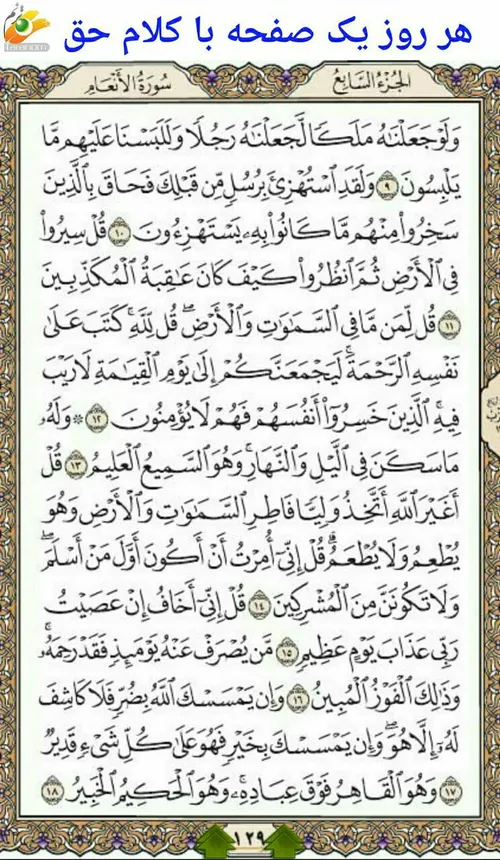 هر روز یک صفحه با کلام حق
الجزء السابع
سورة الأنعام
وَلَوْ جَعَلْنَٰهُ مَلَكًا لَّجَعَلْنَٰهُ رَجُلًا وَلَلَبَسْنَا عَلَيْهِم مَّا
يَلْبِسُونَ ٩ وَلَقَدِ ٱسْتُهْزِئَ بِرُسُلٍ مِّن قَبْلِكَ فَحَاقَ بِٱلَّذِينَ
سَخِرُوا۟ مِنْهُم مَّا كَانُوا۟ بِهِۦ يَسْتَهْزِءُونَ ١٠ قُلْ سِيرُوا۟
فِى ٱلْأَرْضِ ثُمَّ ٱنظُرُوا۟ كَيْفَ كَانَ عَٰقِبَةُ ٱلْمُكَذِّبِينَ
١١ قُل لِّمَن مَّا فِى ٱلسَّمَٰوَٰتِ وَٱلْأَرْضِ ۖ قُل لِّلَّهِ ۚ كَتَبَ عَلَىٰ
نَفْسِهِ ٱلرَّحْمَةَ ۚ لَيَجْمَعَنَّكُمْ إِلَىٰ يَوْمِ ٱلْقِيَٰمَةِ لَا رَيْبَ
فِيهِ ۚ ٱلَّذِينَ خَسِرُوٓا۟ أَنفُسَهُمْ فَهُمْ لَا يُؤْمِنُونَ ١٢ ۞ وَلَهُۥ
مَا سَكَنَ فِى ٱلَّيْلِ وَٱلنَّهَارِ ۚ وَهُوَ ٱلسَّمِيعُ ٱلْعَلِيمُ ١٣ قُلْ
أَغَيْرَ ٱللَّهِ أَتَّخِذُ وَلِيًّا فَاطِرِ ٱلسَّمَٰوَٰتِ وَٱلْأَرْضِ وَهُوَ
يُطْعِمُ وَلَا يُطْعَمُ ۗ قُلْ إِنِّىٓ أُمِرْتُ أَنْ أَكُونَ أَوَّلَ مَنْ أَسْلَمَ ۖ
وَلَا تَكُونَنَّ مِنَ ٱلْمُشْرِكِينَ ١٤ قُلْ إِنِّىٓ أَخَافُ إِنْ عَصَيْتُ
رَبِّى عَذَابَ يَوْمٍ عَظِيمٍ ١٥ مَّن يُصْرَفْ عَنْهُ يَوْمَئِذٍ فَقَدْ رَحِمَهُۥ ۚ
وَذَٰلِكَ ٱلْفَوْزُ ٱلْمُبِينُ ١٦ وَإِن يَمْسَسْكَ ٱللَّهُ بِضُرٍّ فَلَا كَاشِفَ
لَهُۥٓ إِلَّا هُوَ ۖ وَإِن يَمْسَسْكَ بِخَيْرٍ فَهُوَ عَلَىٰ كُلِّ شَىْءٍ قَدِيرٌ
١٧ وَهُوَ ٱلْقَاهِرُ فَوْقَ عِبَادِهِۦ ۚ وَهُوَ ٱلْحَكِيمُ ٱلْخَبِيرُ ١٨
١٢٩